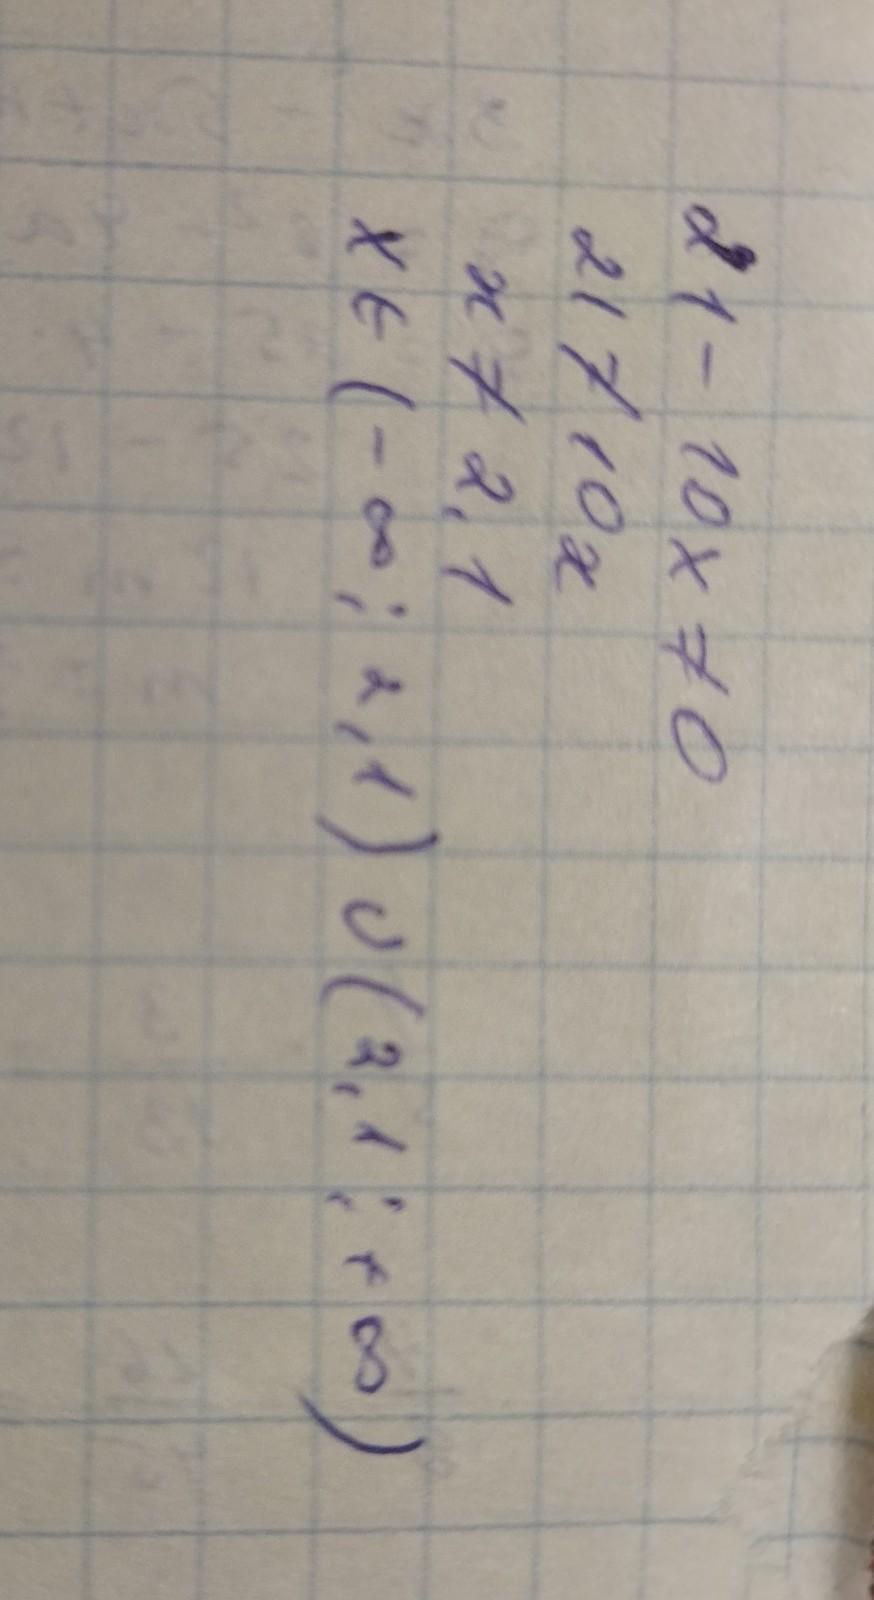 21 - 10x ≠ 0
21 ≠ 10x
x ≠ 2,1
x ∈ (-∞; 2,1) ∪ (2,1; +∞)